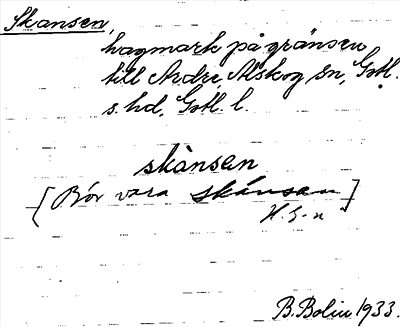 Skansen,
hagmark på gränsen
till Andre, Alskog sn, Gotl.
s. hd, Gotl. l.
skànsen
[Bör vara skánsen]
H. G-n
B. Bolin 1933.